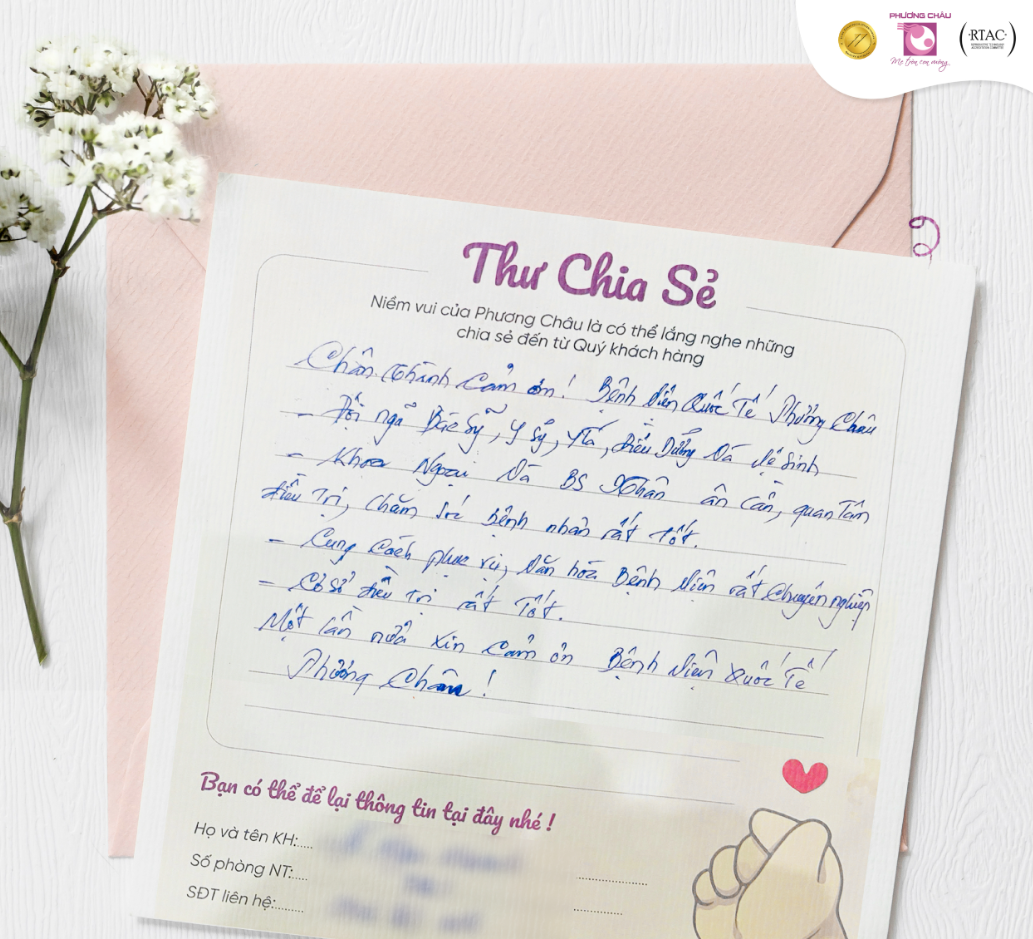 PHƯƠNG CHÂU
Mẹ tròn, con vuông.
RTAC
Thư Chia Sẻ
Niềm vui của Phương Châu là có thể lắng nghe những
chia sẻ đến từ Quý khách hàng
Chân thành cảm ơn! Bệnh viện Quốc Tế Phương Châu
- Đội ngũ Bác sỹ, Y sỹ, Y tá, Điều Dưỡng và vệ sinh
- Khoa Ngoại và BS Thân ân cần, quan tâm
điều trị, chăm sóc bệnh nhân rất tốt.
- Cung cách phục vụ, văn hóa Bệnh viện rất chuyên nghiệp
- Cơ sở điều trị rất tốt.
Một lần nữa xin cảm ơn Bệnh viện Quốc Tế
Phương Châu!
Bạn có thể để lại thông tin tại đây nhé !
Họ và tên KH:.....
Số phòng NT:.....
SĐT liên hệ:........